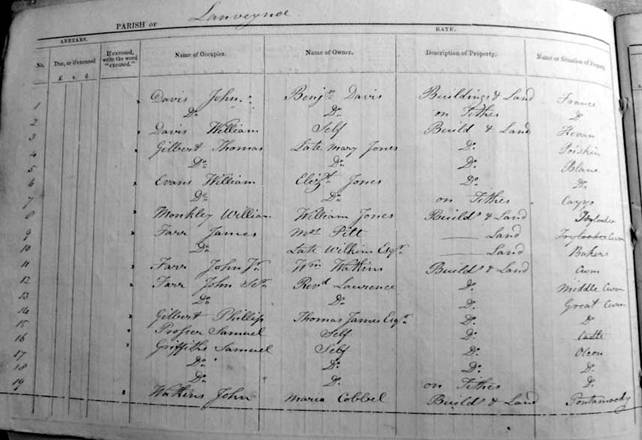 Lanveynoe
PARISH OF
RATE.
ARREARS. If excused, write the word "excused." Name of Occupier. Name of Owner. Description of Property. Name or Situation of Property
No. Due, or if excused
£ s. d.
1 Davis John Benjn. Davis Buildings & Land
2 Do. Do. on Tithes Do
3 Davis William Self Build & Land
4 Gilbert Thomas Late Mary Jones Do.
5 Do. Do. Do. Blaen
6 Evans William Elizth. Jones Do. Do.
7 Do. Do. on Tithes
8 Monkley William William Jones Buildgs & Land
9 Farr James Mrs Pitt Land
10 Do. Late Wilkins Esqr. Land Bakers
11 Farr John Jnr. Wm Watkins Buildgs & Land Cwm
12 Farr John Senr. Revd Lawrence Do. Middle Cwm
13 Do. Do. Do. Great Cwm
14 Gilbert Phillip Thomas James Esqr. Do. Do
15 Prosser Samuel Self Do. Castle
16 Griffiths Samuel Self Do. Olcon
17 Do. Do. Do. Do.
18 Do. Do. on Tithes Do.
19 Watkins John Maria Cobbel Buildgs & Land